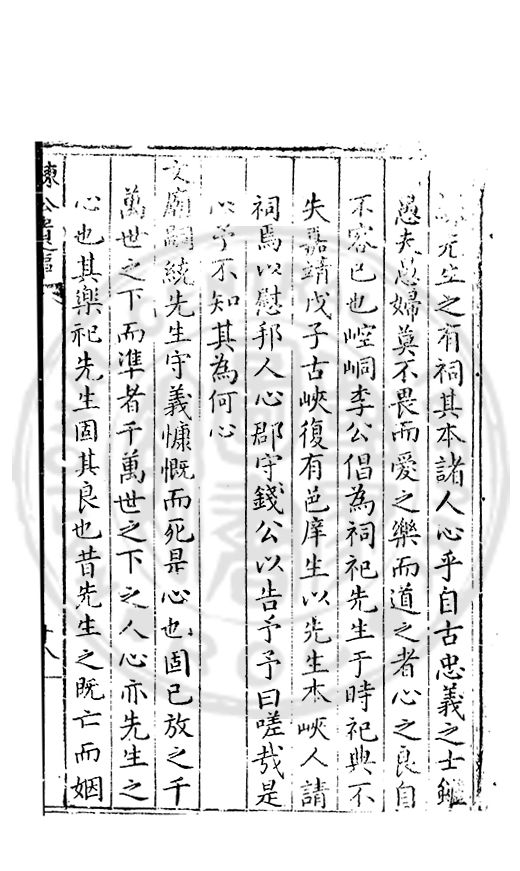 先生之有祠其本諸人心乎自古忠義之士雖
愚夫愚婦莫不畏而愛之樂而道之者心之良自
不容已也崆峒李公倡為祠祀先生于時祀典不
失嘉靖戊子古峽復有邑庠生以先生本峽人請
祠焉以慰邦人心郡守錢公以告予予曰嗟哉是
心予不知其為何心
文廟嗣統先生守義慷慨而死是心也固已放之千
萬世之下而準者千萬世之下之人心亦先生之
心也其樂祀先生固其良也昔先生之既亡而姻
練公遺
十八